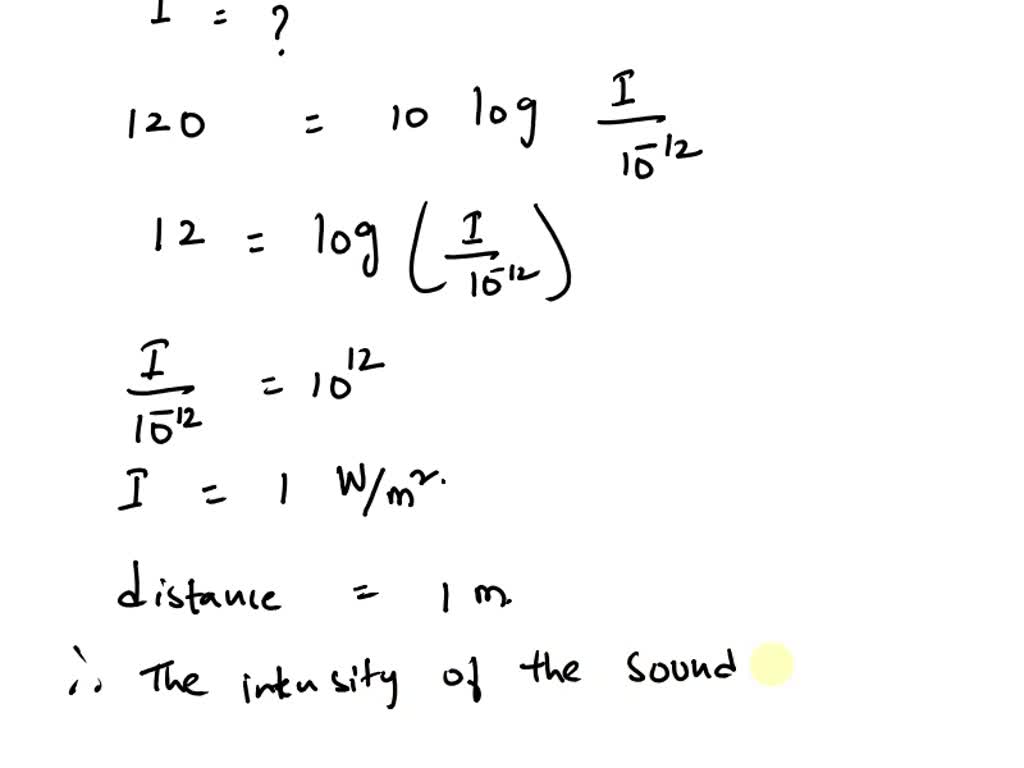 I = ?
120 = 10 log I/10⁻¹²
12 = log (I/10⁻¹²)
I/10⁻¹² = 10¹²
I = 1 W/m².
distance = 1 m
∴ The intensity of the sound